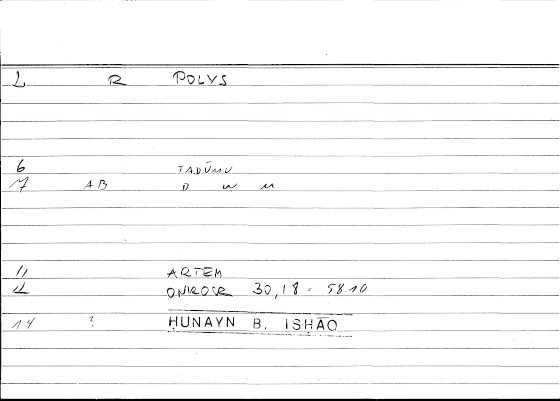 L R POLYS
6 TADŪMU
7 AB D W M
11 ARTEM
12 ONIROCR 30,18 = 58.10
14 ? ḤUNAYN B. ISḤĀQ